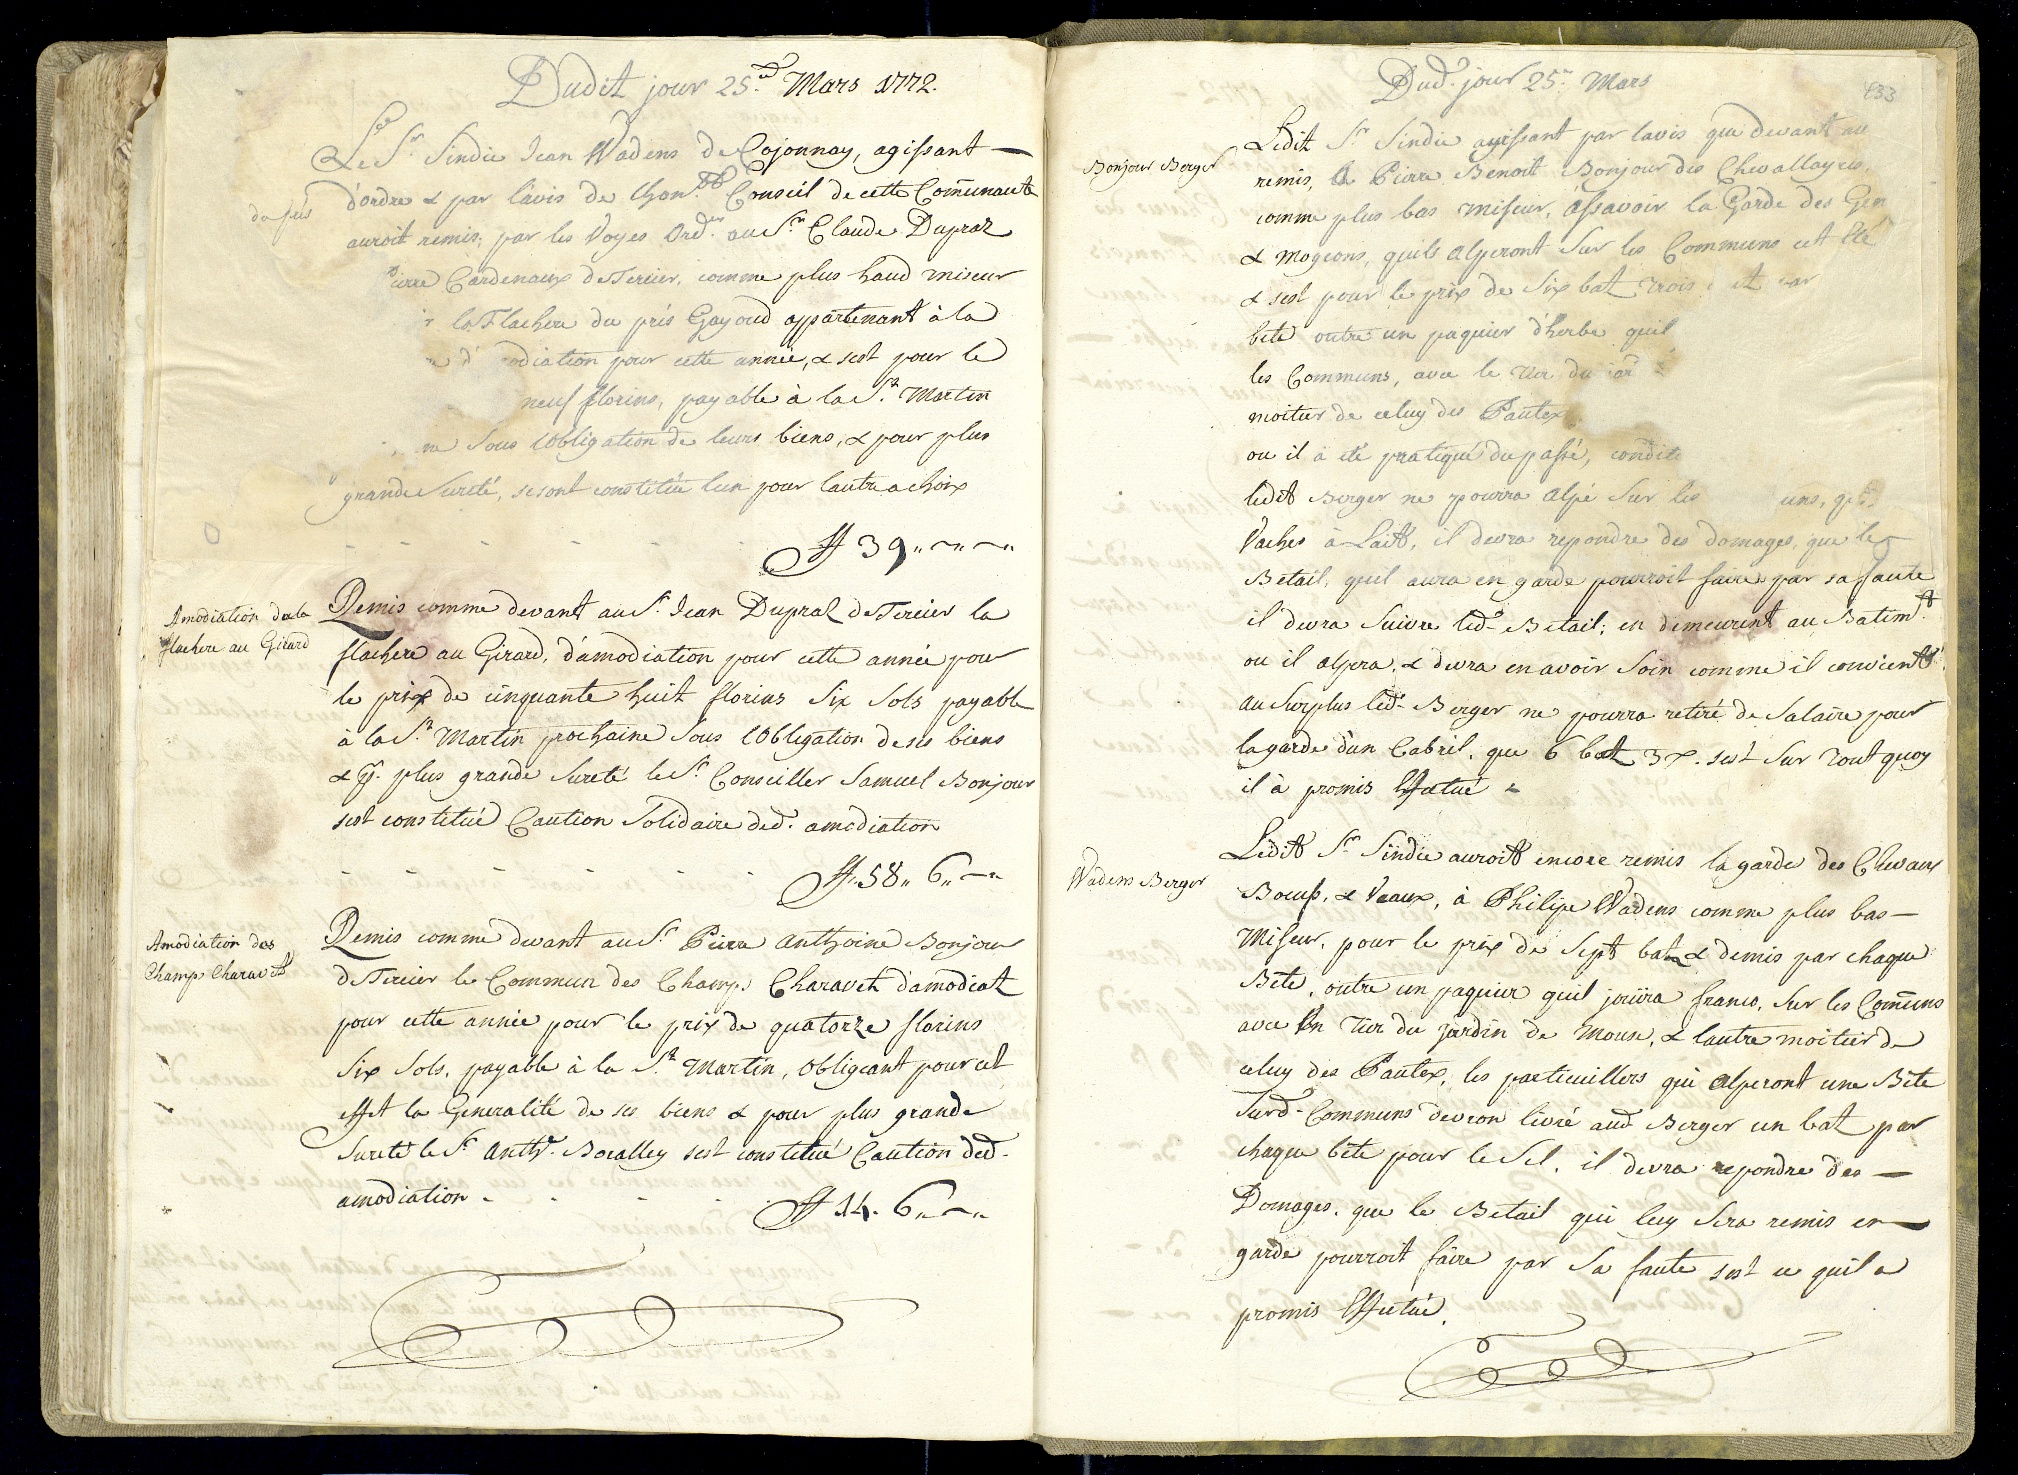 Dudit jour 25.e Mars 1772.
Le Sr. Sindic Jean Wadens de Cojonnay, agissant —
d'ordre & par l'avis de lhon.ble Conseil de cette Com̄unauté
auroit remis, par les Voyes Ord.res au Sr. Claude Dupraz
Pierre Cardenaux de Tercier, comme plus haud miseur
la Flachere du pré Gayoud appartenant à la
odiation pour cette année, & sest pour le
neuf florins, payable à la St. Martin
Sous lobligation de leurs biens, & pour plus
grande Sureté, se sont constitué lun pour lautre a choix
ff 39 „ ~ „ ~ „
Amodiation de la
flachere au Girard
Remis comme devant au Sr. Jean Dupraz de Tercier la
flachere au Girard, d'amodiation pour cette année pour
le prix de cinquante huit florins Six Sols payable
à la St. Martin prochaine Sous l'Obligation de ses biens
& pr. plus grande Sureté le Sr. Conseiller Samuel Bonjour
sest constitué Caution Solidaire ded. amodiation
ff. 58 „ 6 „ ~ „
Amodiation des
Champ Charavet
Remis comme devant au Sr. Pierre Anthoine Bonjour
de Tercier le Commun des Champ Charavet d'amodiat
pour cette année pour le prix de quatorze florins
Six Sols, payable à la St. Martin, Obligeant pour cet
effet la Generalité de ses biens & pour plus grande
Sureté le Sr. Anthe. Bocalley sest constitué Caution ded.
amodiation
ff 14 „ 6 „ ~ „
Dud. jour 25.e Mars
433
Bonjour Berger
Ledit Sr. Sindic agissant par lavis que devant au
remis, à Pierre Benoit Bonjour des Chevalleyres,
comme plus bas miseur, assavoir la Garde des Gen
& mogeons, quils alperont Sur les Communs cet Eté
& sest pour le prix de Six bat trois et par
bete outre un paquier d'herbe quil
les Communs, avec le tier du jard
moitier de celuy des Pautex
ou il à été pratiqué du passé, condit
ledit Berger ne pourra alpé Sur les uns, que
Vaches à Lait, il devra repondre des domages, que le
Betail, quil aura en garde pourroit faire par sa faute
il devra Suivre led. Betail; en demeurent au Batimt.
ou il alpera, & devra en avoir Soin comme il convient,
au Surplus led. Berger ne pourra retiré de Salaire pour
la garde d'un Cabril, que 6 bat 3 x. sest Sur tout quoy
il à promis Effectué
Wadens Berger
Ledit Sr. Sindic auroit encore remis la garde des Chevaux
Boeufs, & Veaux, à Philipe Wadens comme plus bas —
Miseur, pour le prix de Sept batz & demis par chaque
Bete, outre un paquier quil jouira franco, Sur les Com̄uns
avec un tier du jardin de Mouse, & lautre moitier de
celuy des Pautex, les particuillers qui alperont une Bete
Surd. Communs devron livré aud. Berger un bat par
chaque bete pour le Sel, il devra repondre des —
Domages, que le Betail qui luy Sera remis en
garde pourroit faire par Sa faute sest ce quil a
promis Effectué.